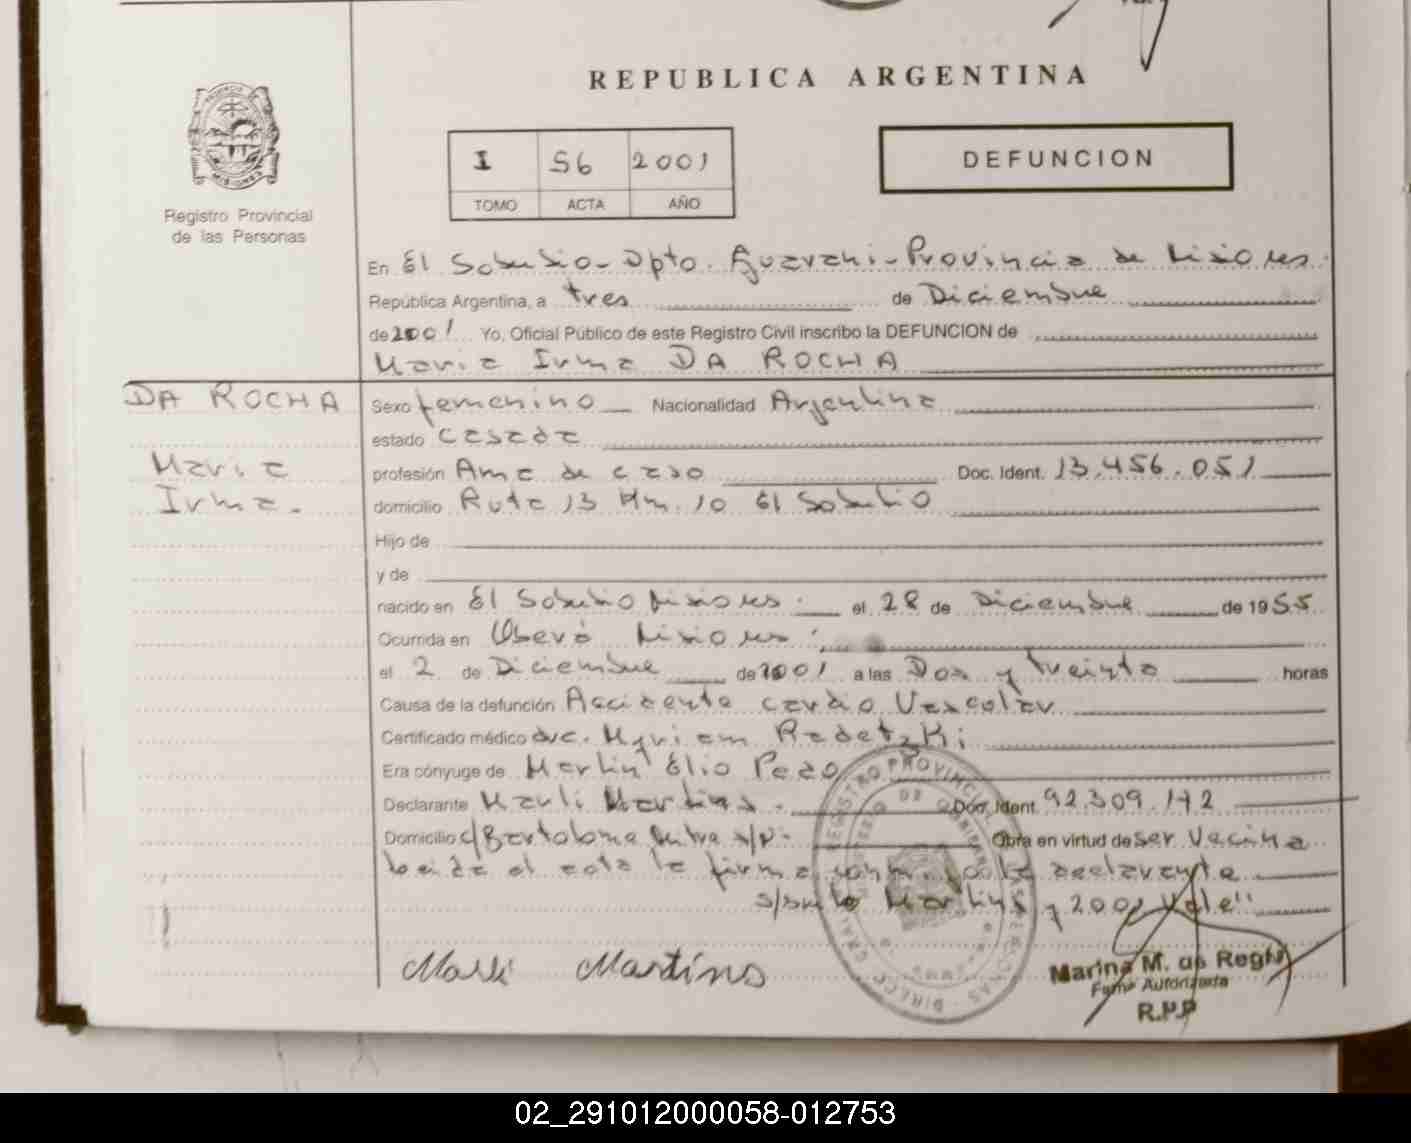 REPUBLICA ARGENTINA
I 56 2001
TOMO ACTA AÑO
DEFUNCION
Registro Provincial
de las Personas
En El Soberbio - Dpto. Guarani - Provincia de Misiones
República Argentina, a tres de Diciembre
de 2001 Yo, Oficial Público de este Registro Civil inscribo la DEFUNCION de
Maria Irma DA ROCHA
DA ROCHA
Maria
Irma.
Sexo femenino Nacionalidad Argentina
estado casada
profesión Ama de casa Doc. Ident. 13.456.051
domicilio Ruta 13 Km. 10 El Soberbio
Hijo de
y de
nacido en El Soberbio Misiones. el 28 de Diciembre de 1955
Ocurrida en Oberá Misiones.
el 2 de Diciembre de 2001 a las Dos y treinta horas
Causa de la defunción Accidente cardio Vascular
Certificado médico Myriam Radetzki
Era cónyuge de Martin Elio
Declarante Marli Martins. Doc. Ident. 92.309.172
Domicilio c/Bartolome Mitre s/n. Obra en virtud de ser Vecina
Leida el acta la firma la declarante
Martins y 2001 Vale"
Marli Martins
Marina M. de Regh
Firma Autorizada
R.P.P
02_291012000058-012753